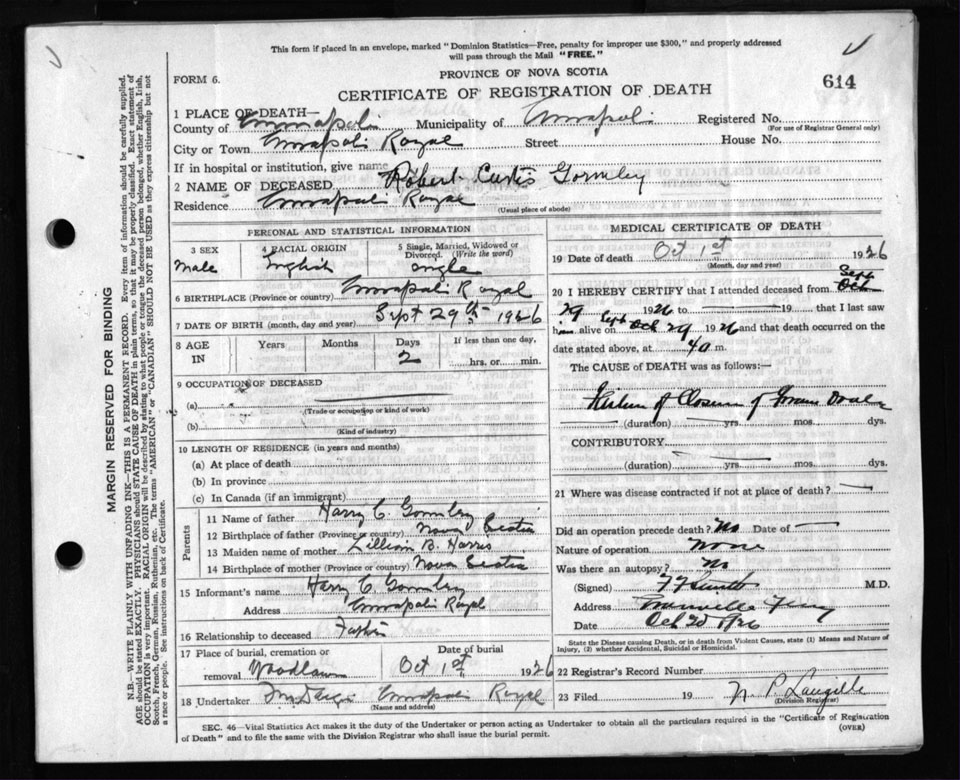 This form if placed in an envelope, marked "Dominion Statistics—Free, penalty for improper use $300," and properly addressed
will pass through the Mail "FREE."
FORM 6.
PROVINCE OF NOVA SCOTIA
614
CERTIFICATE OF REGISTRATION OF DEATH
MARGIN RESERVED FOR BINDING
N.B.—WRITE PLAINLY WITH UNFADING INK—THIS IS A PERMANENT RECORD. Every item of information should be carefully supplied.
AGE should be stated EXACTLY. PHYSICIANS should STATE CAUSE OF DEATH in plain terms, so that it may be properly classified. Exact statement of
OCCUPATION is very important. RACIAL ORIGIN will be described by stating to what people or tongue the deceased person belonged, whether English, Irish,
Scotch, French, German, Russian, Ruthenian, etc. The terms "AMERICAN" or "CANADIAN" SHOULD NOT BE USED as they express citizenship but not
a race or people. See instructions on back of Certificate.
1 PLACE OF DEATH—
County of Annapolis Municipality of Annapolis Registered No.
(For use of Registrar General only)
City or Town Annapolis Royal Street House No.
If in hospital or institution, give name
2 NAME OF DECEASED Robert Curtis Gormley
Residence Annapolis Royal
(Usual place of abode)
PERSONAL AND STATISTICAL INFORMATION
3 SEX
Male
4 RACIAL ORIGIN
English
5 Single, Married, Widowed or
Divorced. (Write the word)
single
6 BIRTHPLACE (Province or country) Annapolis Royal
7 DATE OF BIRTH (month, day and year) Sept 29th 1926
8 AGE
IN
Years Months Days
2
If less than one day,
hrs. or min.
9 OCCUPATION OF DECEASED
(a)
(Trade or occupation or kind of work)
(b)
(Kind of industry)
10 LENGTH OF RESIDENCE (in years and months)
(a) At place of death
(b) In province
(c) In Canada (if an immigrant)
Parents
11 Name of father Harry C. Gormley
12 Birthplace of father (Province or country) Nova Scotia
13 Maiden name of mother Lillian B. Harris
14 Birthplace of mother (Province or country) Nova Scotia
15 Informant's name Harry C Gormley
Address Annapolis Royal
16 Relationship to deceased Father
17 Place of burial, cremation or
removal Woodlawn
Date of burial
Oct 1st 1926
18 Undertaker Annapolis Royal
(Name and address)
MEDICAL CERTIFICATE OF DEATH
19 Date of death Oct 1st 1926
(Month, day and year)
Sept
20 I HEREBY CERTIFY that I attended deceased from Oct
29 1926 to 19 that I last saw
him alive on Sept Oct 29 1926 and that death occurred on the
date stated above, at m.
The CAUSE OF DEATH was as follows:—
of Closure of
(duration) yrs. mos. dys.
CONTRIBUTORY
(duration) yrs. mos. dys.
21 Where was disease contracted if not at place of death?
Did an operation precede death? No Date of
Nature of operation None
Was there an autopsy? No
(Signed) M.D.
Address Granville Ferry
Date Oct
State the Disease causing Death, or in death from Violent Causes, state (1) Means and Nature of
Injury, (2) whether Accidental, Suicidal or Homicidal.
22 Registrar's Record Number
23 Filed 19 N. P. Langille
(Division Registrar)
SEC. 46—Vital Statistics Act makes it the duty of the Undertaker or person acting as Undertaker to obtain all the particulars required in the "Certificate of Registration
of Death" and to file the same with the Division Registrar who shall issue the burial permit.
(OVER)